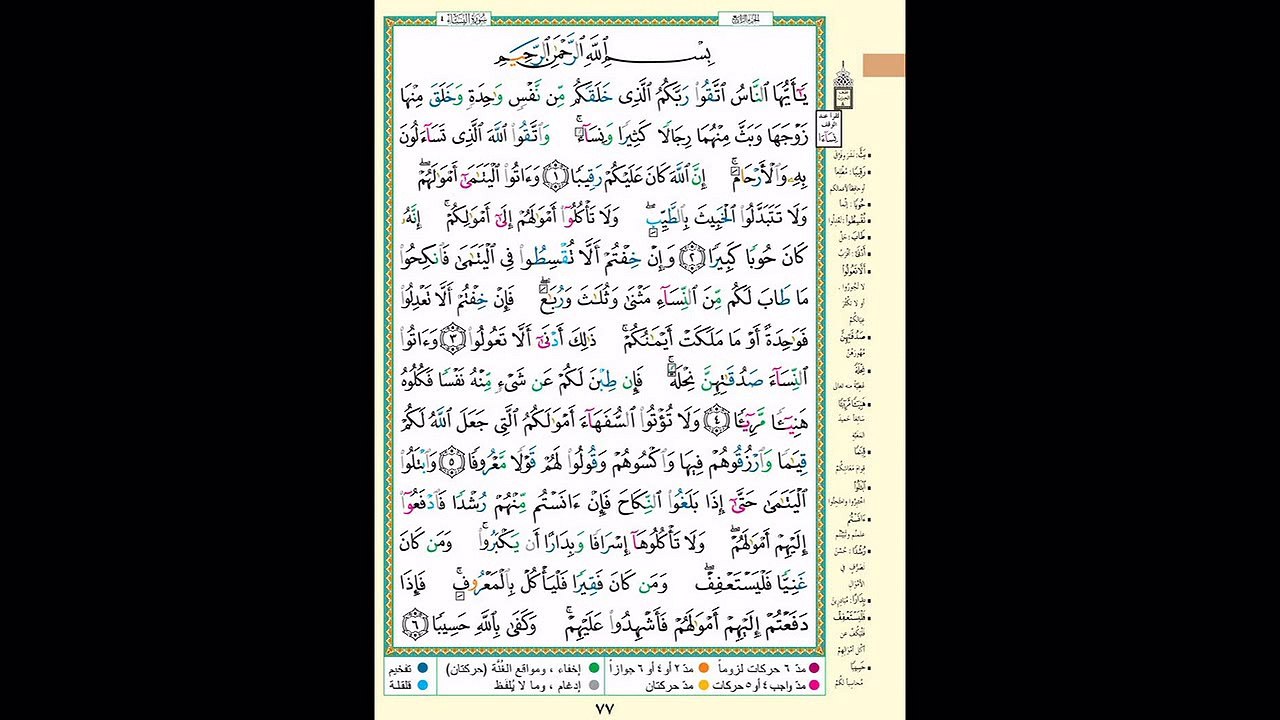 سورة النساء ٤
الجزء الرابع
بِسْمِ اللَّهِ الرَّحْمَٰنِ الرَّحِيمِ
يَٰٓأَيُّهَا ٱلنَّاسُ ٱتَّقُوا۟ رَبَّكُمُ ٱلَّذِى خَلَقَكُم مِّن نَّفْسٍ وَٰحِدَةٍ وَخَلَقَ مِنْهَا
زَوْجَهَا وَبَثَّ مِنْهُمَا رِجَالًا كَثِيرًا وَنِسَآءً ۚ وَٱتَّقُوا۟ ٱللَّهَ ٱلَّذِى تَسَآءَلُونَ
بِهِۦ وَٱلْأَرْحَامَ ۚ إِنَّ ٱللَّهَ كَانَ عَلَيْكُمْ رَقِيبًا ١ وَءَاتُوا۟ ٱلْيَتَٰمَىٰٓ أَمْوَٰلَهُمْ ۖ
وَلَا تَتَبَدَّلُوا۟ ٱلْخَبِيثَ بِٱلطَّيِّبِ ۖ وَلَا تَأْكُلُوٓا۟ أَمْوَٰلَهُمْ إِلَىٰٓ أَمْوَٰلِكُمْ ۚ إِنَّهُۥ
كَانَ حُوبًا كَبِيرًا ٢ وَإِنْ خِفْتُمْ أَلَّا تُقْسِطُوا۟ فِى ٱلْيَتَٰمَىٰ فَٱنكِحُوا۟
مَا طَابَ لَكُم مِّنَ ٱلنِّسَآءِ مَثْنَىٰ وَثُلَٰثَ وَرُبَٰعَ ۖ فَإِنْ خِفْتُمْ أَلَّا تَعْدِلُوا۟
فَوَٰحِدَةً أَوْ مَا مَلَكَتْ أَيْمَٰنُكُمْ ۚ ذَٰلِكَ أَدْنَىٰٓ أَلَّا تَعُولُوا۟ ٣ وَءَاتُوا۟
ٱلنِّسَآءَ صَدُقَٰتِهِنَّ نِحْلَةً ۚ فَإِن طِبْنَ لَكُمْ عَن شَىْءٍ مِّنْهُ نَفْسًا فَكُلُوهُ
هَنِيٓـًٔا مَّرِيٓـًٔا ٤ وَلَا تُؤْتُوا۟ ٱلسُّفَهَآءَ أَمْوَٰلَكُمُ ٱلَّتِى جَعَلَ ٱللَّهُ لَكُمْ
قِيَٰمًا وَٱرْزُقُوهُمْ فِيهَا وَٱكْسُوهُمْ وَقُولُوا۟ لَهُمْ قَوْلًا مَّعْرُوفًا ٥ وَٱبْتَلُوا۟
ٱلْيَتَٰمَىٰ حَتَّىٰٓ إِذَا بَلَغُوا۟ ٱلنِّكَاحَ فَإِنْ ءَانَسْتُم مِّنْهُمْ رُشْدًا فَٱدْفَعُوٓا۟
إِلَيْهِمْ أَمْوَٰلَهُمْ ۖ وَلَا تَأْكُلُوهَآ إِسْرَافًا وَبِدَارًا أَن يَكْبَرُوا۟ ۚ وَمَن كَانَ
غَنِيًّا فَلْيَسْتَعْفِفْ ۖ وَمَن كَانَ فَقِيرًا فَلْيَأْكُلْ بِٱلْمَعْرُوفِ ۚ فَإِذَا
دَفَعْتُمْ إِلَيْهِمْ أَمْوَٰلَهُمْ فَأَشْهِدُوا۟ عَلَيْهِمْ ۚ وَكَفَىٰ بِٱللَّهِ حَسِيبًا ٦
تقرأ عند
الوقف
نِسَاءَا
رَقِيبًا: مطلعاً
حُوبًا: إثماً
طَابَ: حلّ
أَدْنَىٰ: أقرب
أَلَّا تَعُولُوا
صَدُقَٰتِهِنَّ
مهورهنّ
نِحْلَةً
عطيّة منه تعالى
قِيَٰمًا
ءَانَسْتُم
رُشْدًا: حسن
تصرّف في
الأموال
بِدَارًا: مبادرين
فَلْيَسْتَعْفِفْ
فليكفّ عن
أكل أموالهم
حَسِيبًا
محاسباً لكم
مدّ ٦ حركات لزوماً
مدّ ٢ أو ٤ أو ٦ جوازاً
إخفاء ، ومواقع الغُنَّة (حركتان)
تفخيم
مدّ واجب ٤ أو ٥ حركات
مدّ حركتان
إدغام ، وما لا يُلفَظ
قلقلة
٧٧